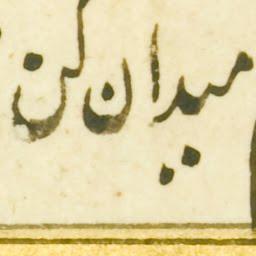 میدان کن